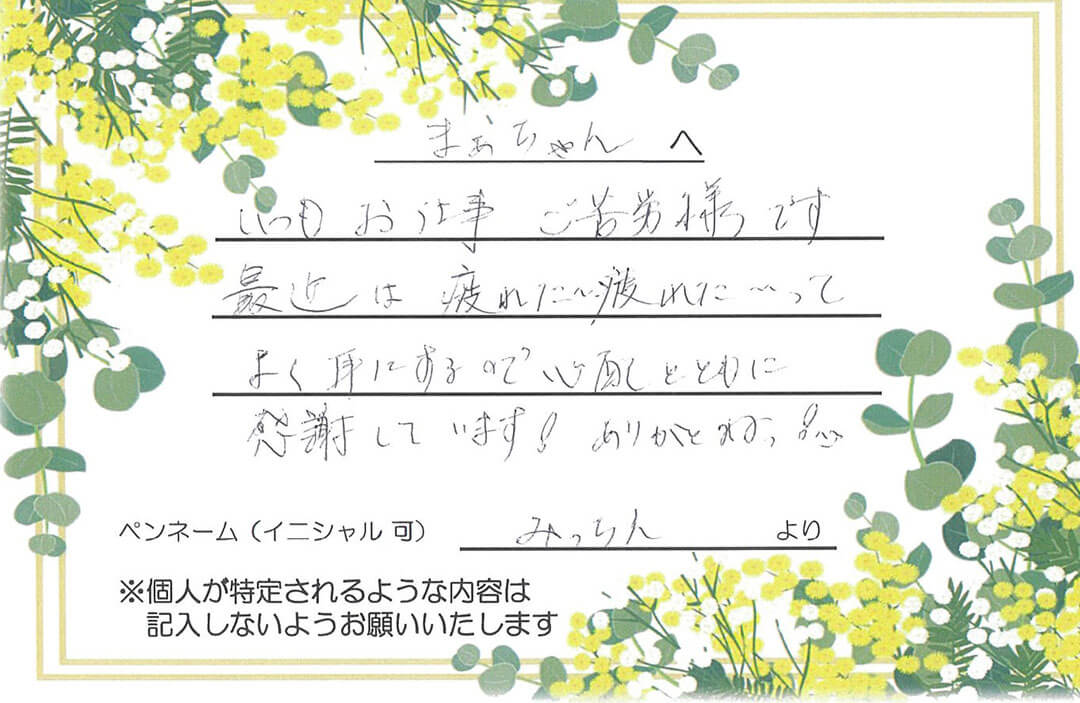 まぁちゃん へ
いつも お仕事 ご苦労様です
最近は 疲れた…疲れた…って
よく耳にするので心配とともに
感謝しています! ありがとねっ!
ペンネーム(イニシャル 可) みっちん より
※個人が特定されるような内容は
記入しないようお願いいたします